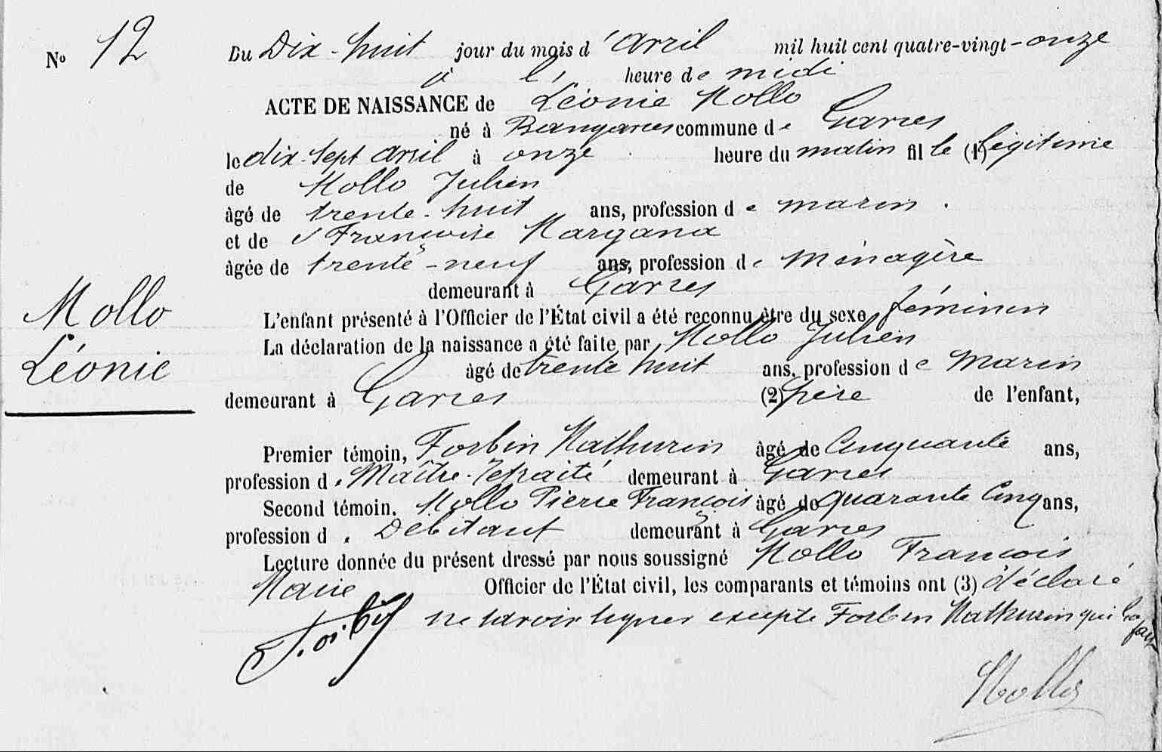 No 12
Du Dix-huit jour du mois d'Avril mil huit cent quatre-vingt-onze
à l' heure de midi
ACTE DE NAISSANCE de Léonie Mollo
né à commune de Gavres
le dix-sept avril à onze heure du matin fille (1) légitime
de Mollo Julien
âgé de trente-huit ans, profession de marin.
et de Françoise Margana
âgée de trente-neuf ans, profession de Ménagère
demeurant à Gavres
Mollo
Léonie
L'enfant présenté à l'Officier de l'État civil a été reconnu être du sexe féminin
La déclaration de la naissance a été faite par Mollo Julien
âgé de trente huit ans, profession de Marin
demeurant à Gavres (2) père de l'enfant,
Premier témoin, Forbin Mathurin âgé de Cinquante ans,
profession d. Maître-retraité demeurant à Gavres
Second témoin. Mollo Pierre François âgé de quarante cinq ans,
profession d. Débitant demeurant à Gavres
Lecture donnée du présent dressé par nous soussigné Mollo François
Maire Officier de l'État civil, les comparants et témoins ont (3) déclaré
ne savoir signer excepté Forbin Mathurin qui
Mollo